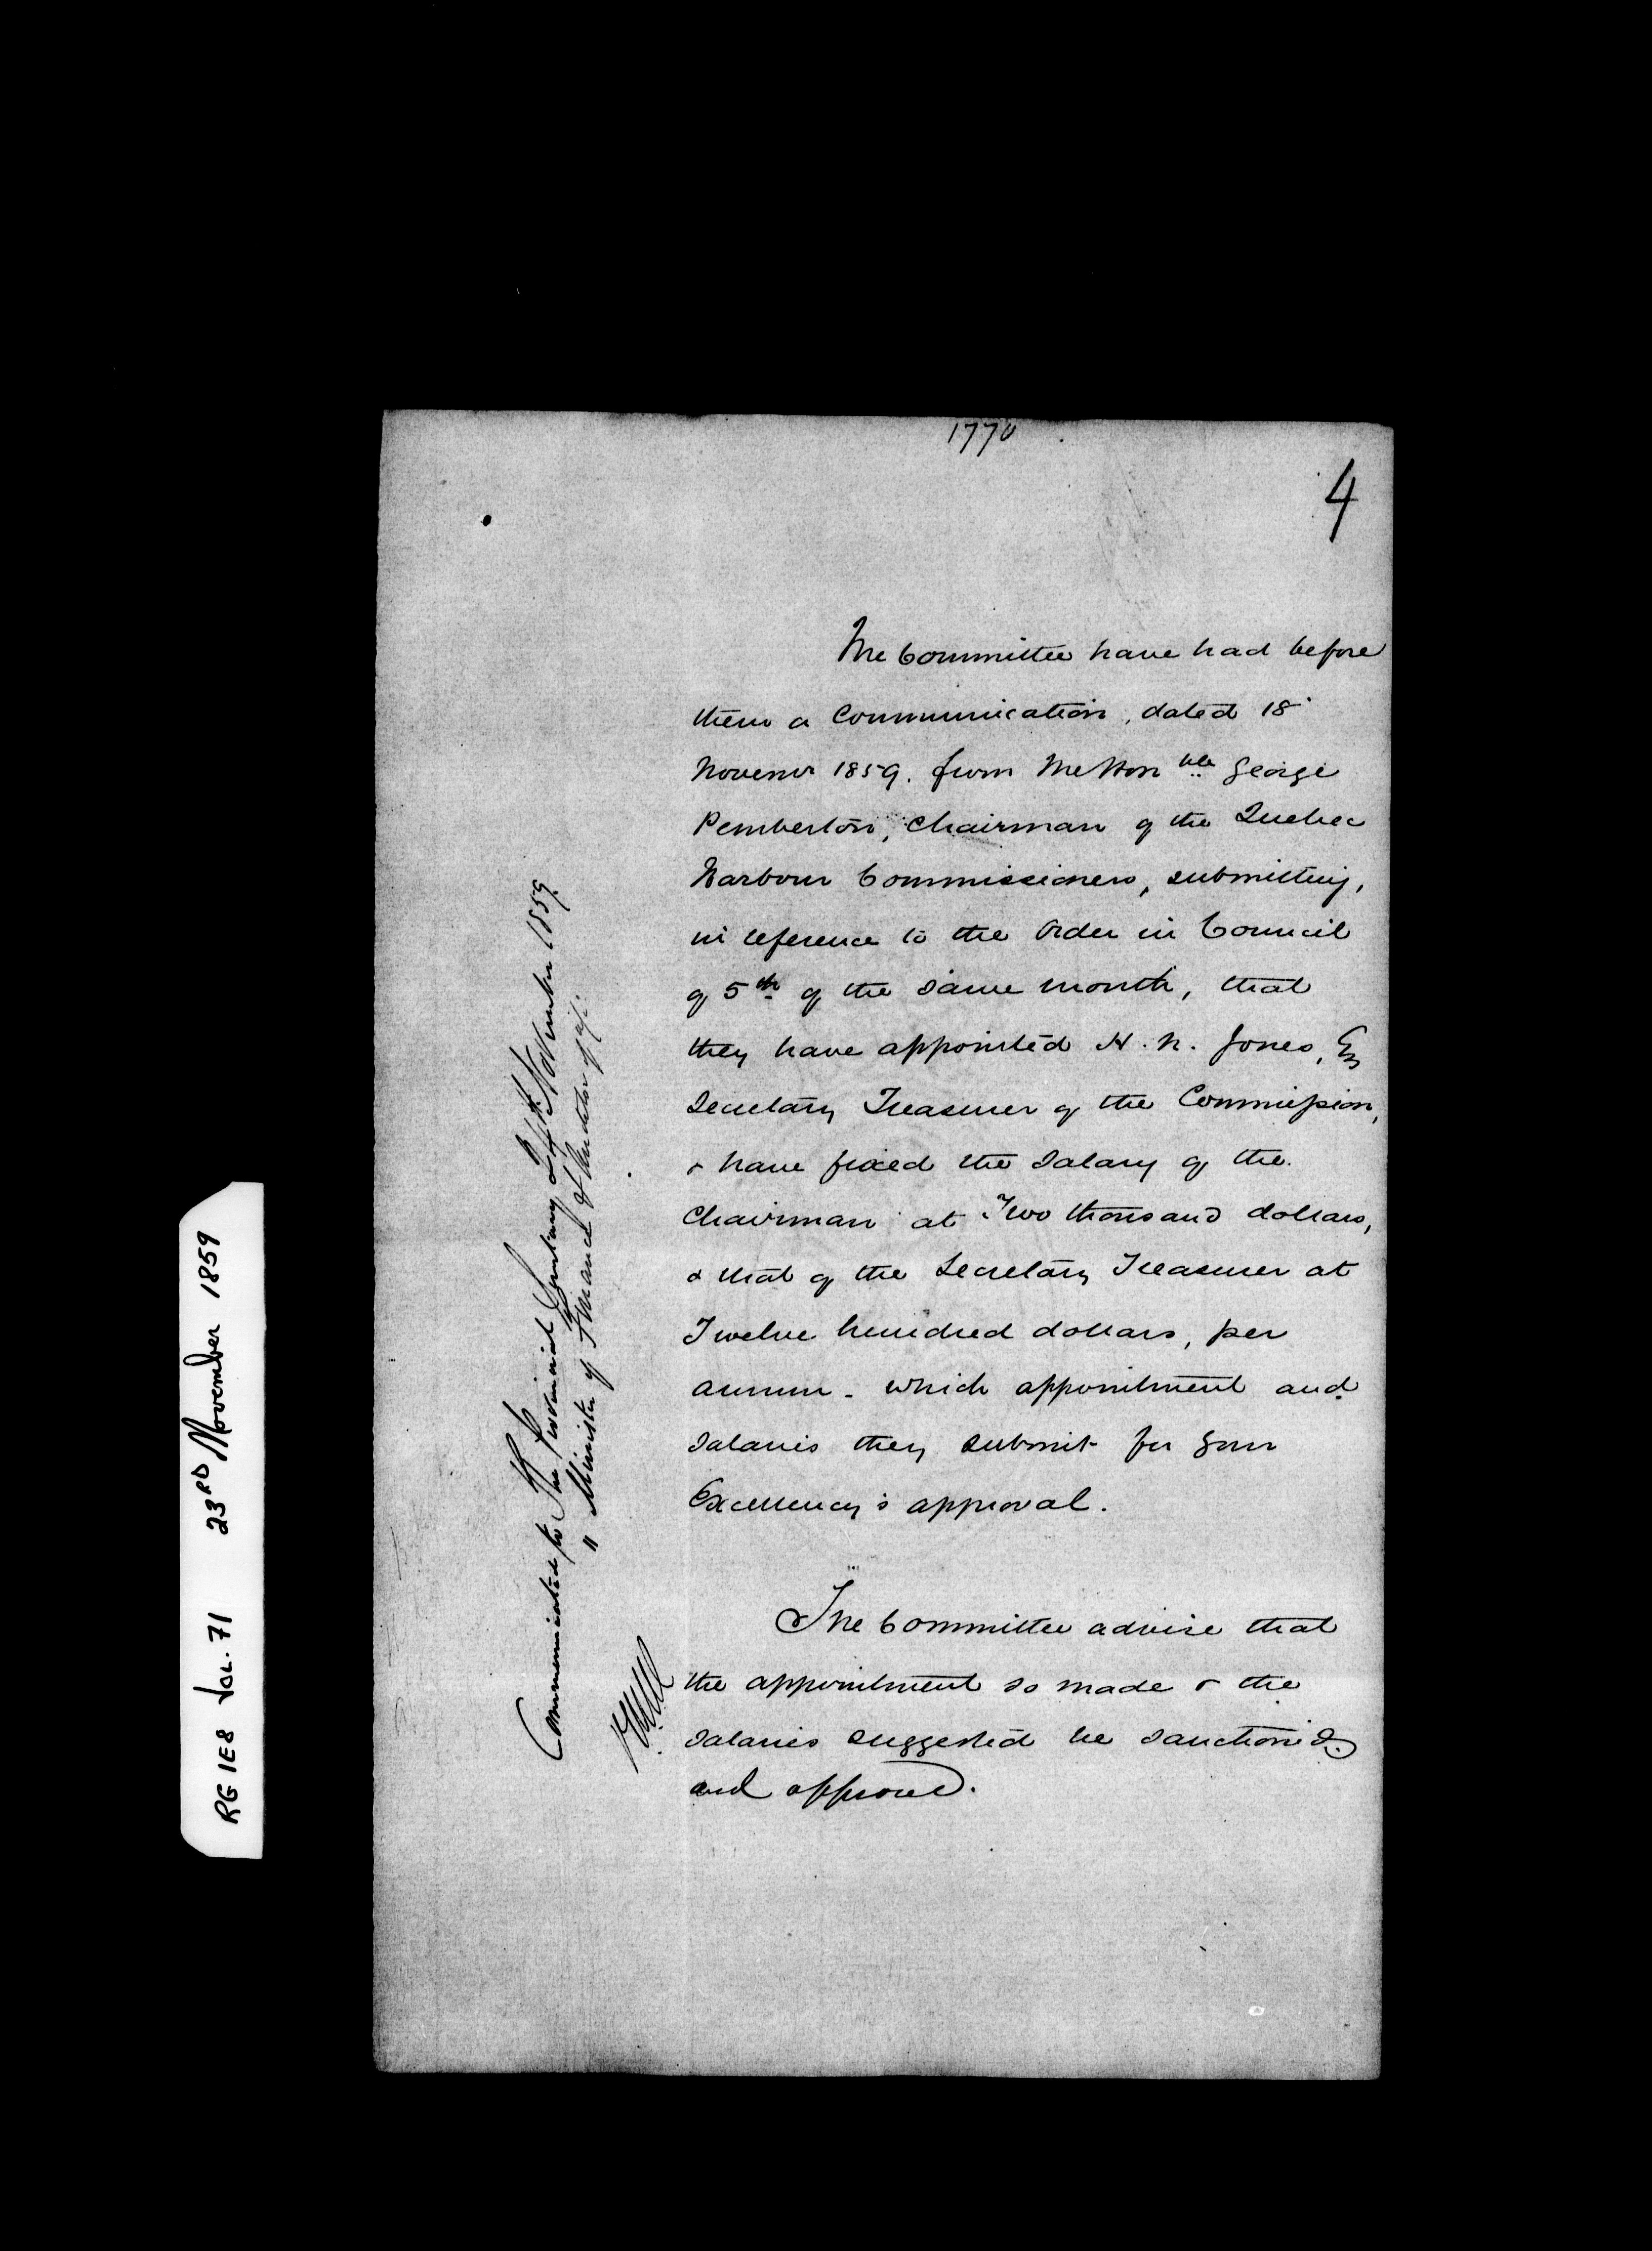 1770
4
The Committee have had before
them a Communication, dated 18
Novemr 1859. from the Honble George
Pemberton, Chairman of the Quebec
Harbour Commissioners, submitting,
in reference to the Order in Council
of 5th of the same month, that
they have appointed H. N. Jones, Esq
Secretary Treasurer of the Commission,
& have fixed the Salary of the
Chairman at Two thousand dollars,
& that of the Secretary Treasurer at
Twelve hundred dollars, per
annum - which appointment and
Salaries they submit for Your
Excellency's approval.
The Committee advise that
the appointment so made & the
Salaries suggested be sanctioned
and approved.
Communicated to The Provincial Secretary 24th November 1859.
" Minister of Finance & Auditor of a/c.
RG 1E8 Vol. 71 23RD November 1859